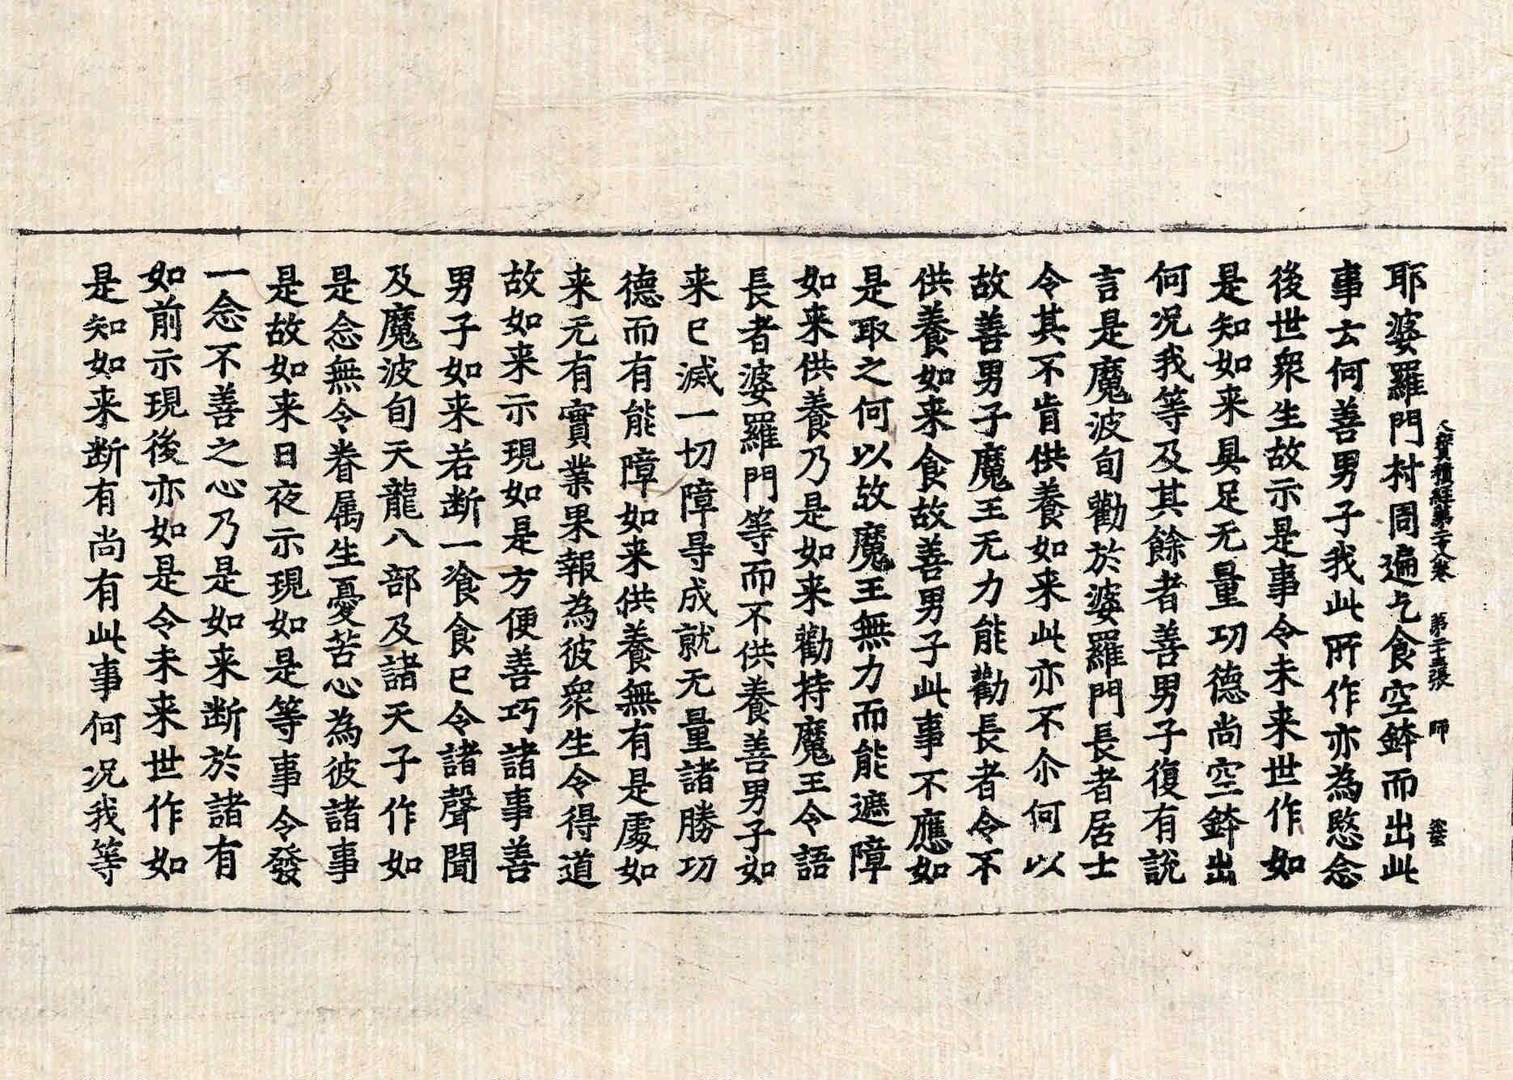 大寶積經第二十八卷 第二十五張 師
耶婆羅門村周遍乞食空鉢而出此
事云何善男子我此所作亦為愍念
後世衆生故示是事令未来世作如
是知如来具足无量功德尚空鉢出
何况我等及其餘者善男子復有說
言是魔波旬勸於婆羅門長者居士
令其不肯供養如来此亦不尒何以
故善男子魔王无力能勸長者令不
供養如来食故善男子此事不應如
是取之何以故魔王無力而能遮障
如来供養乃是如来勸持魔王令語
長者婆羅門等而不供養善男子如
来已滅一切障㝵成就无量諸勝功
德而有能障如来供養無有是處如
来无有實業果報為彼衆生令得道
故如来示現如是方便善巧諸事善
男子如来若断一飡食已令諸聲聞
及魔波旬天龍八部及諸天子作如
是念無令眷属生憂苦心為彼諸事
是故如来日夜示現如是等事令發
一念不善之心乃是如来断於諸有
如前示現後亦如是令未来世作如
是知如来断有尚有此事何况我等